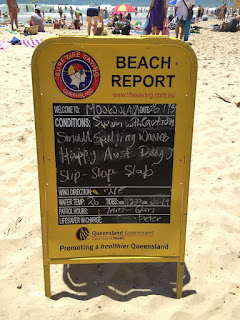 SURF LIFE SAVING
QUEENSLAND
BEACH
REPORT
www.lifesaving.com.au
WELCOME TO: Mooloolaba DATE: 26/1/13
CONDITIONS: Swim with Caution
Small Spilling Waves
Happy Aust Day
Slip-Slop Slap
WIND DIRECTION: NE
WATER TEMP: 26 TIDES:
PATROL HOURS:
LIFESAVER IN CHARGE: Peter
Queensland Government
Queensland Health
Promoting a healthier Queensland